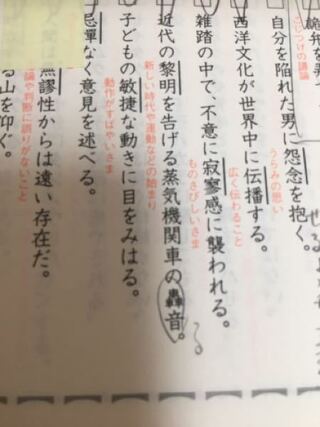 詭弁を弄
こじつけの議論
自分を陥れた男に怨念を抱く。
うらみの思い
西洋文化が世界中に伝播する。
広く伝わること
雑踏の中で、不意に寂寥感に襲われる。
ものさびしいさま
近代の黎明を告げる蒸気機関車の轟音。
新しい時代や運動などの始まり
子どもの敏捷な動きに目をみはる。
動作がすばやいさま
忌憚なく意見を述べる。
無謬性からは遠い存在だ。
論や判断に誤りがないこと
る山を仰ぐ。